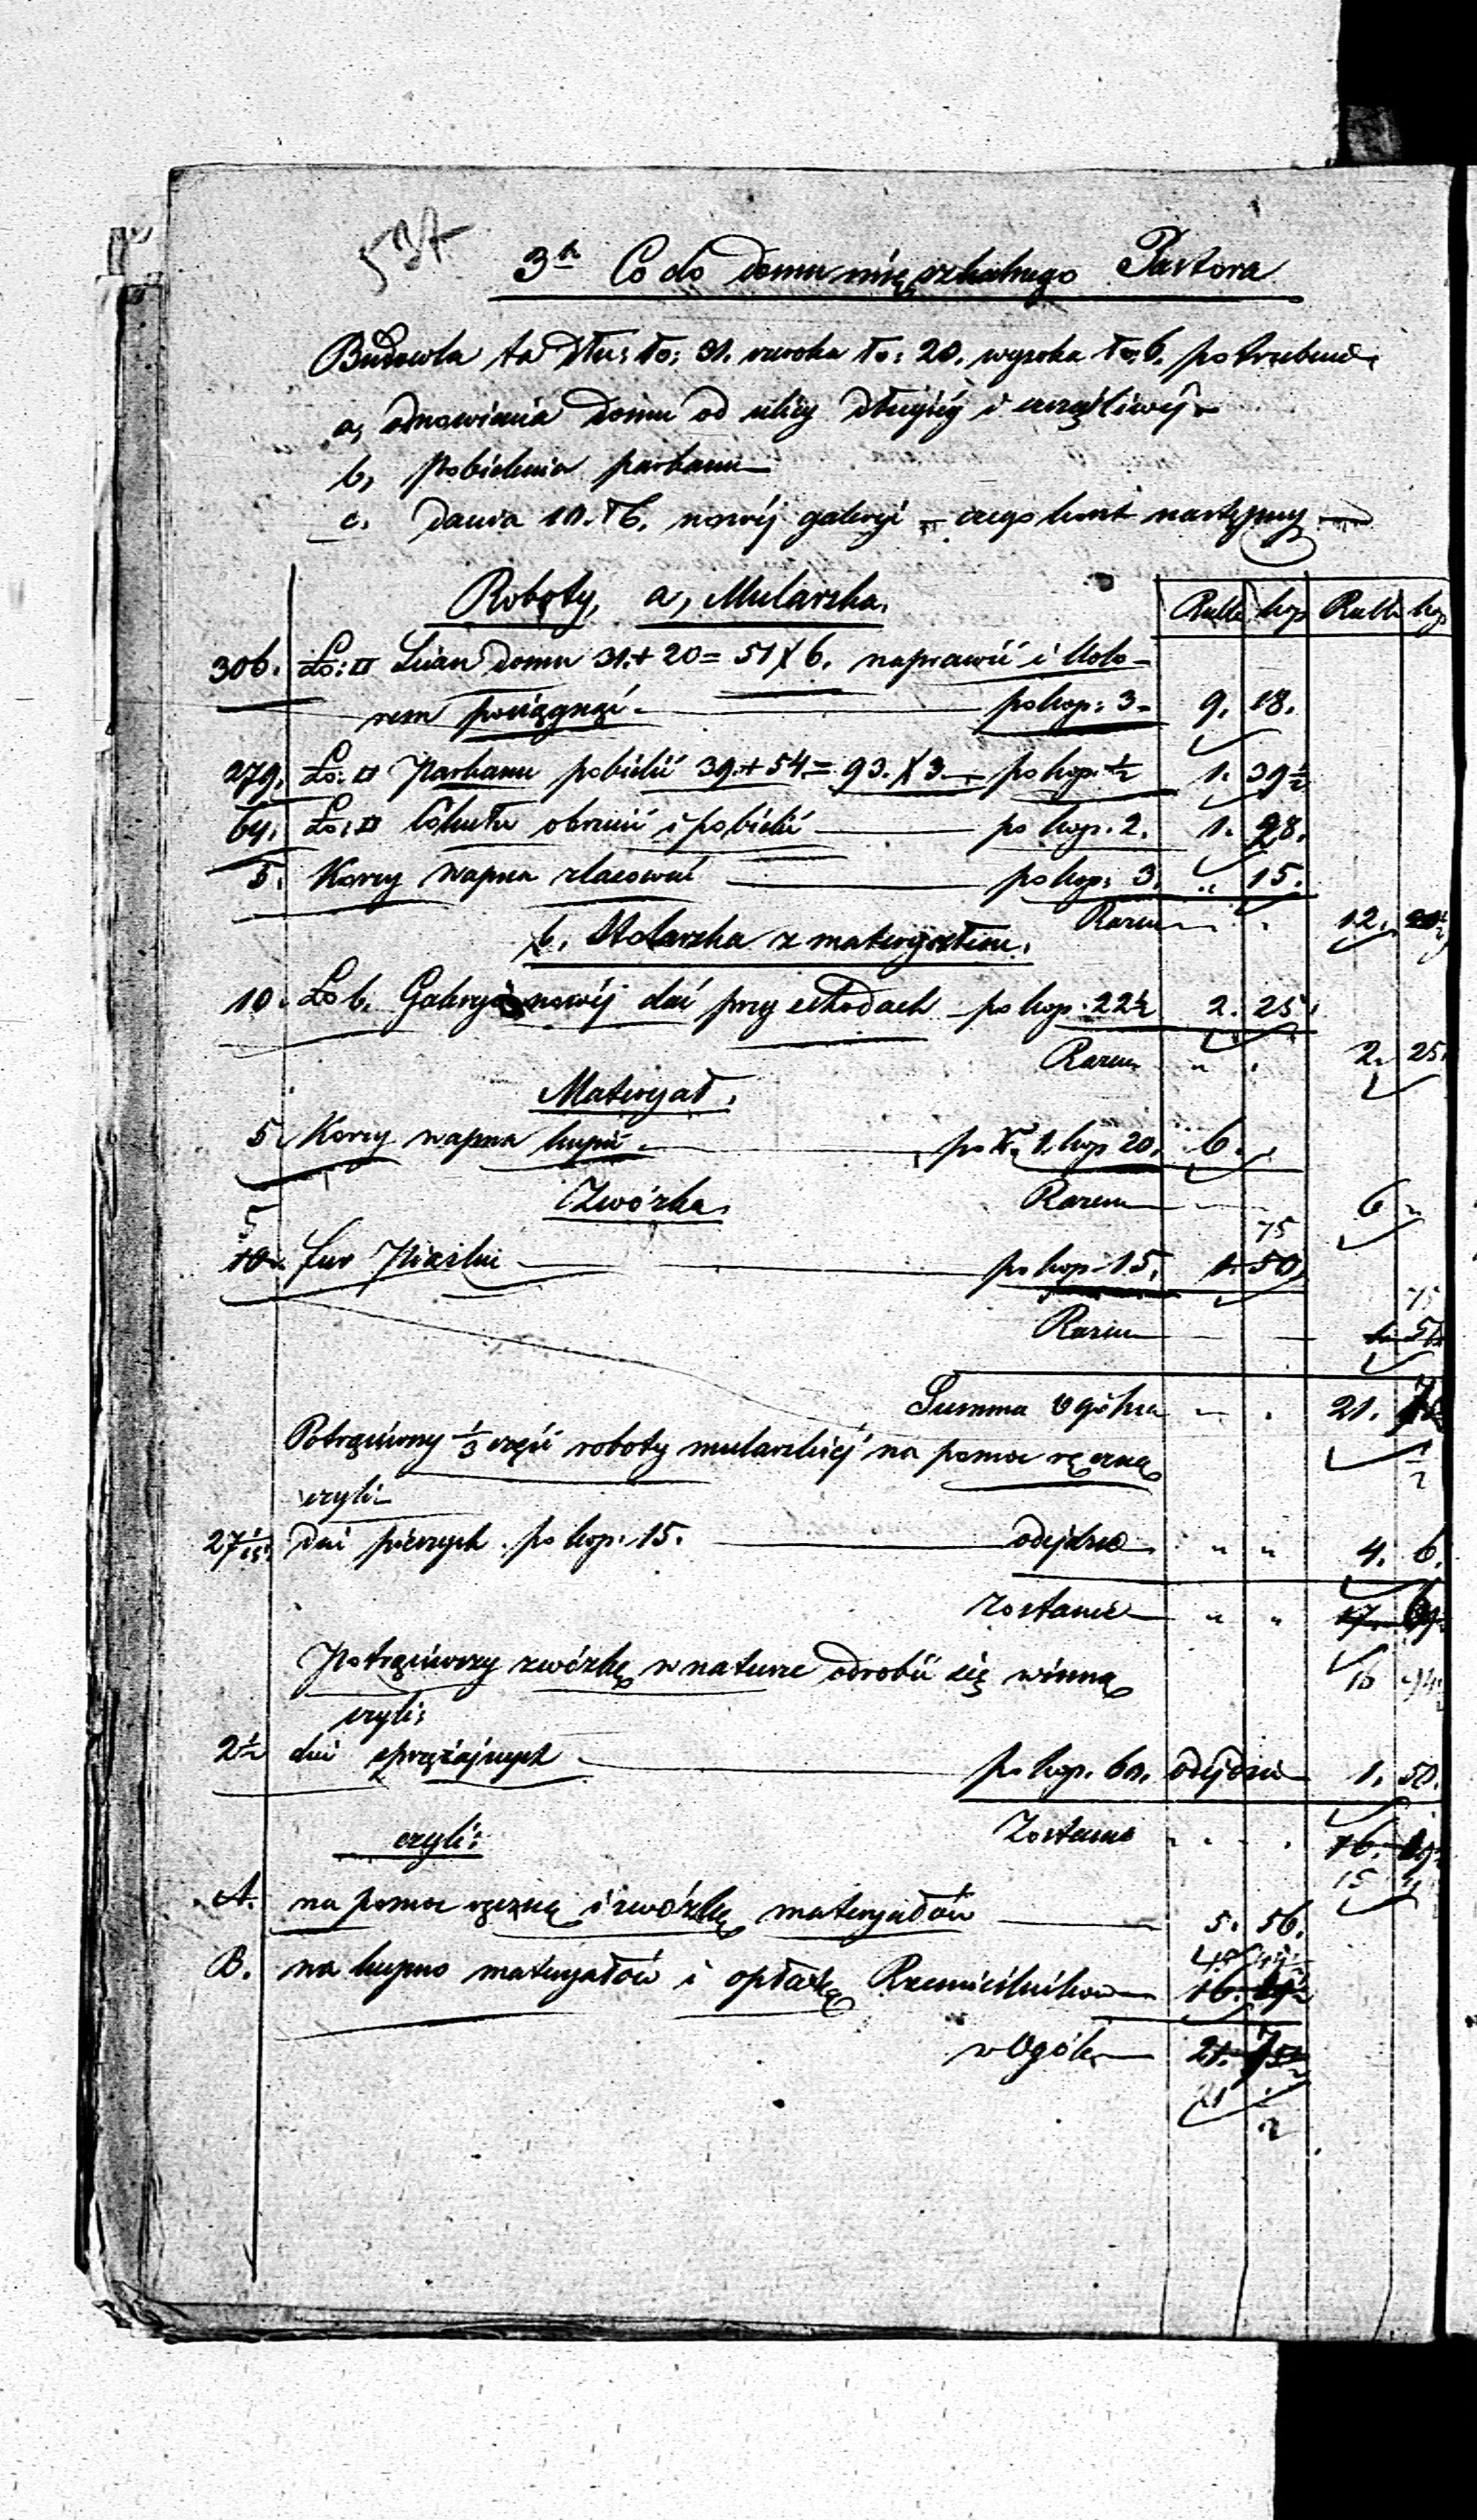 537
3ci Co do Domu mięszkalnego Pastora
Budowla ta dłu: ło: 31. szeroka ło: 20. wysoka ło: 6. potrzebuie
a, odnowienia Domu od ulicy długiéj i
b, Pobielenia parkanu
c. Dania 10. ł b. nowéj galeryi czego koszt następny
Roboty, a, Mularska. Rubli kop Rubli kop
306. Ło: □ Ścian Domu 31.+20=51 X 6. naprawić i kolo-
rem pociągnąć. po kop: 3 9. 18.
279. Ło: □ Parkanu pobielić 39.+54=93. X 3 po kop. ½ 1. 39½
64. Ło: □ obrzucić i pobielić po kop. 2. 1. 28.
5. Korcy wapna zlasować po kop: 3. " 15.
Razem 12.
b. Stolarska z materyałem.
10. Ło b. Galeryi nowéj dać przy schodach po kop. 22½ 2. 25.
Razem " 2. 25.
Materyał.
5 Korcy wapna kupić. po R. 1. kop 20. 6.
Zwózka. Razem 6 "
5 75
10 fur Piasku po kop 15. 1. 50.
75
Razem 1. 50
Summa Ogólna 21.
Potrąciwszy ⅓ część roboty mularskiéj na pomoc ręczną
czyli
27 1/15 dni pieszych po kop. 15. odejdzie " " 4. 6.
Zostanie " " 17.
Potrąciwszy zwózkę w naturze odrobić się winną
czyli:
2½ dni sprzężajnych po kop. 60. odejdzie 1. 50.
czyli: Zostanie 16.
15
A. na pomoc ręczną i zwózkę materyałów 5. 56.
B. na kupno materyałów i opłatę Rzemieślników 16.
w Ogóle 21. 75
21